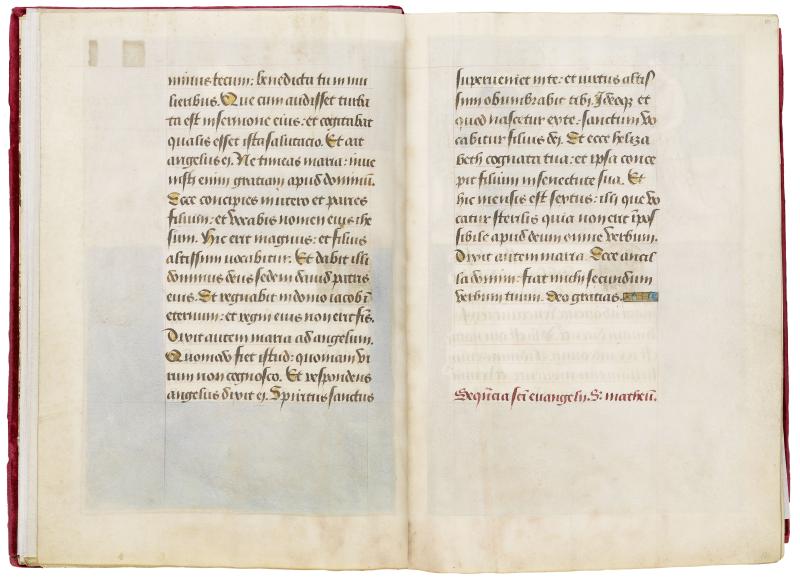 minus tecum: benedicta tu in mu
lieribus. Que cum audisset turba
ta est in sermone eius: et cogitabat
qualis esset ista salutacio. Et ait
angelus ei. Ne timeas maria: inve
nisti enim gratiam apud dominū.
Ecce concipies in utero et paries
filium: et vocabis nomen eius ihe
sum. Hic erit magnus: et filius
altissimi vocabitur. Et dabit illi
dominus deus sedem david patris
eius. Et regnabit in domo iacob ī
eternum: et regni eius non erit fīs.
Dixit autem maria ad angelum.
Quomodo fiet istud: quoniam vi
rum non cognosco. Et respondens
angelus dixit ei. Spiritus sanctus
superveniet in te: et virtus altis
simi obumbrabit tibi. Ideoqz et
quod nascetur ex te: sanctum vo
cabitur filius dei. Et ecce heliza
beth cognata tua: et ipsa conce
pit filium in senectute sua. Et
hic mensis est sextus: illi que vo
catur sterilis quia non erit īpos
sibile apud deum omne verbum.
Dixit autem maria. Ecce ancil
la domini: fiat michi secundum
verbum tuum. Deo gratias.
Sequēcia scī euangelii. S. matheū.